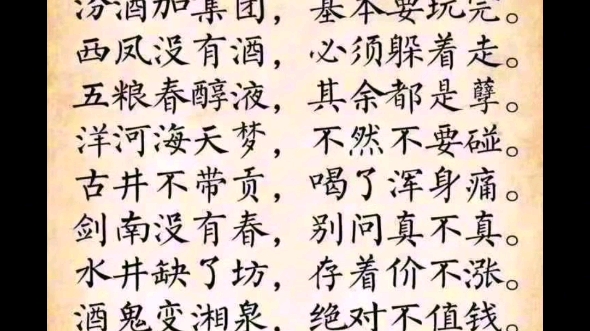 汾酒加集团，基本要玩完。
西凤没有酒，必须躲着走。
五粮春醇液，其余都是孽。
洋河海天梦，不然不要碰。
古井不带贡，喝了浑身痛。
剑南没有春，别问真不真。
水井缺了坊，存着价不涨。
酒鬼变湘泉，绝对不值钱。